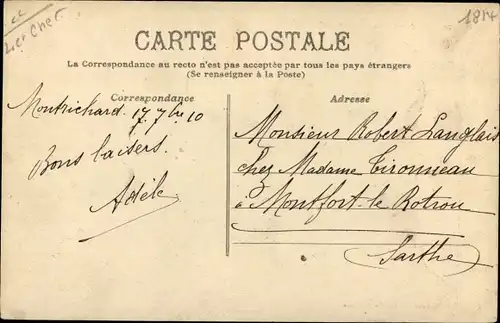 L et Cher
1814
CARTE POSTALE
La Correspondance au recto n'est pas acceptée par tous les pays étrangers
(Se renseigner à la Poste)
Correspondance
Montrichard. 17. 7bre 10
Bons baisers.
Adèle
Adresse
Monsieur Robert Langlais
chez Madame Tironneau
à Montfort-le Rotrou
Sarthe